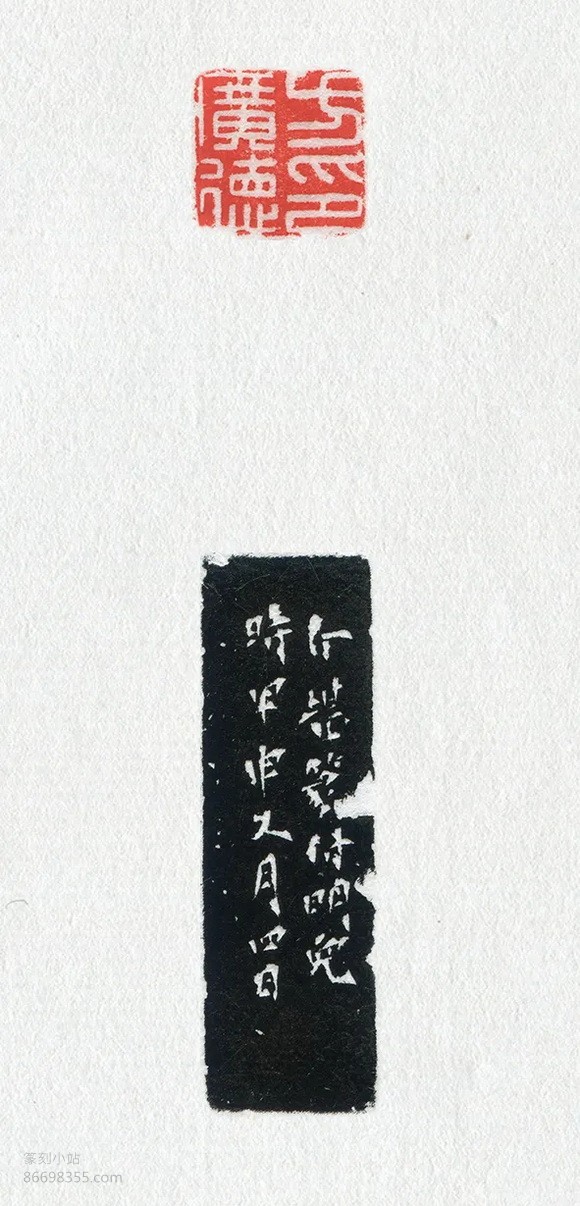 方印
廣德
介堪篆付明兒
時甲申月四日
篆刻小站
86698355.com